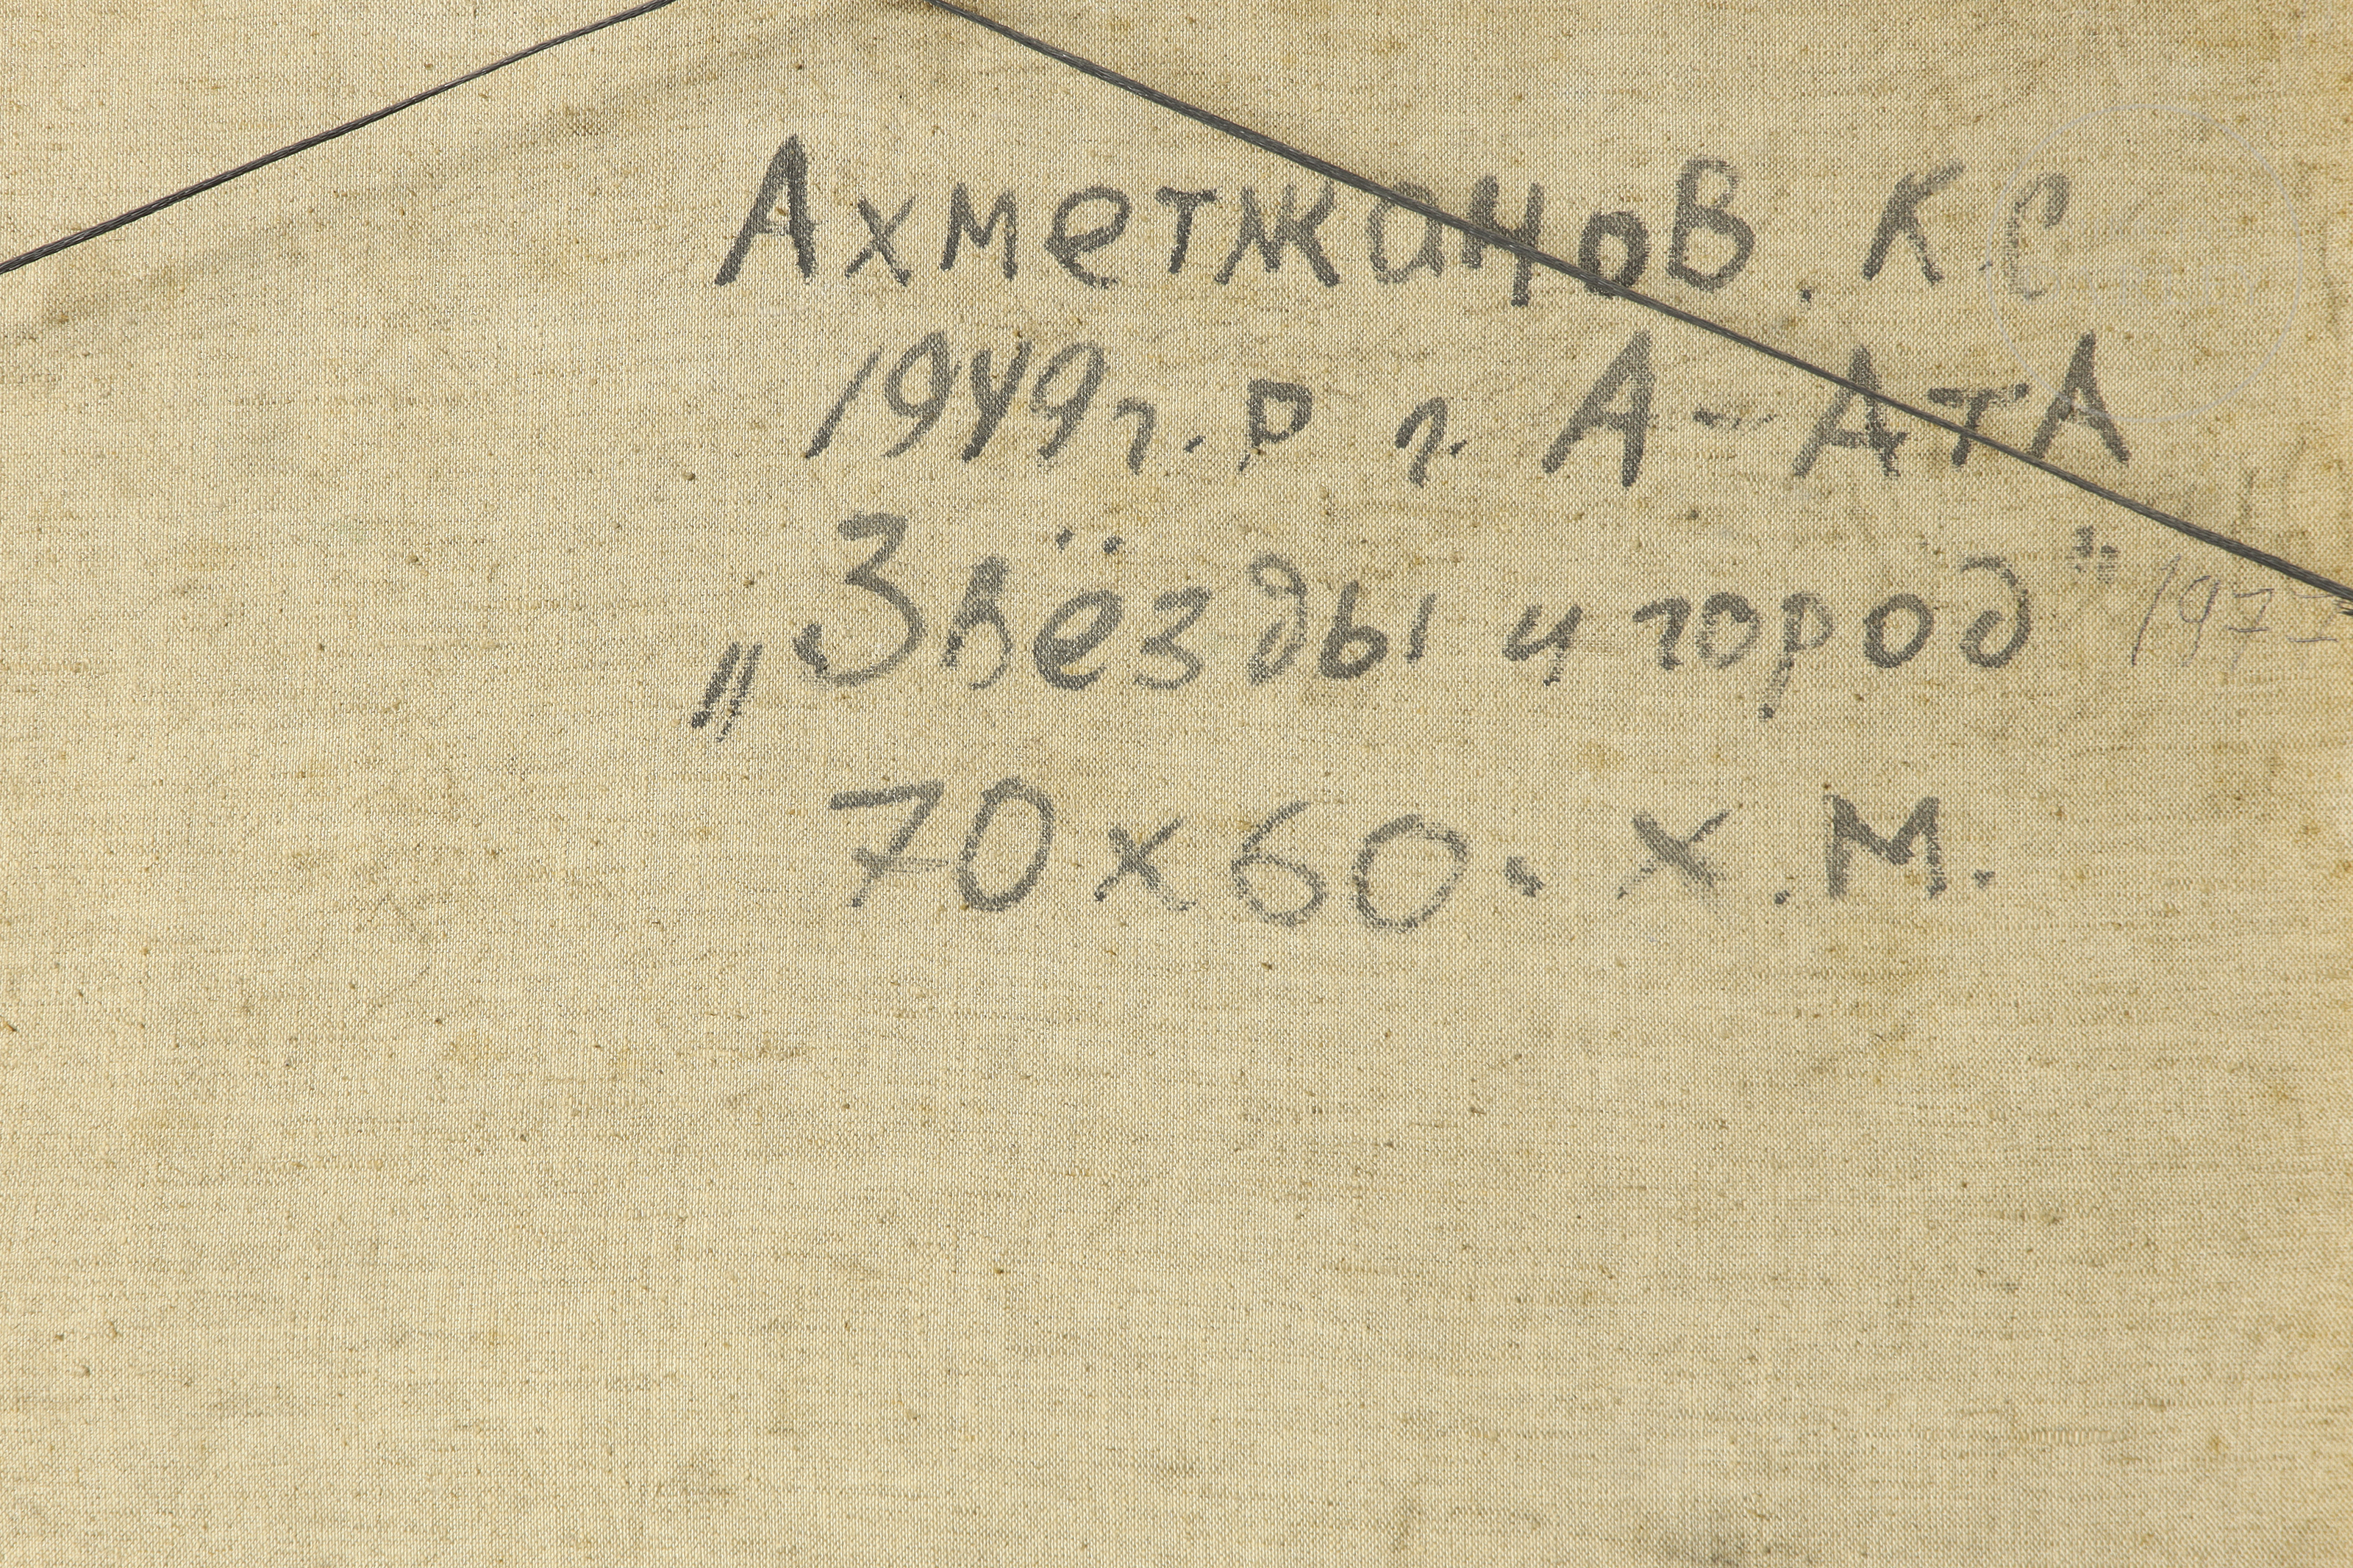 Ахметжанов. К С
1949г. р г. А-АтА
„Звёзды и город" 1977
70х60. х.м.